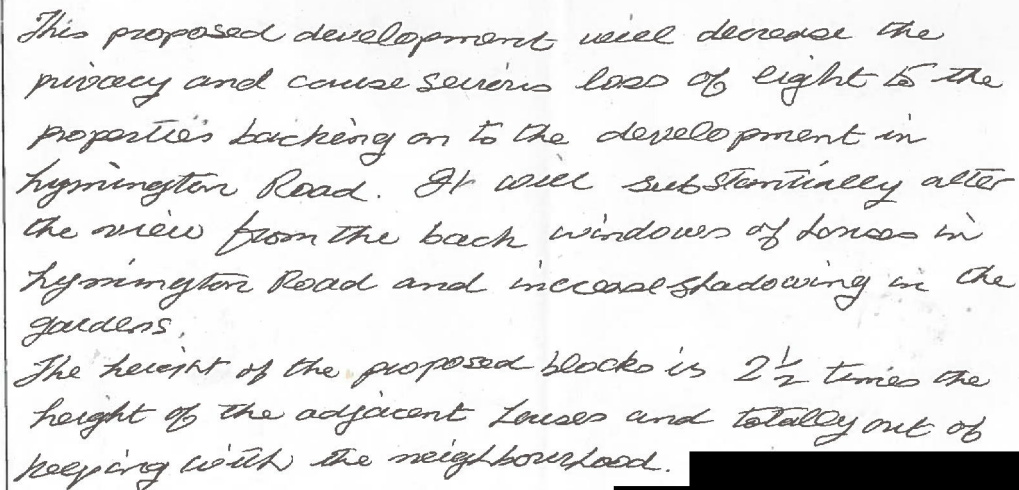 This proposed development will decrease the
privacy and cause serious loss of light to the
properties backing on to the development in
Lymington Road. It will substantially alter
the view from the back windows of houses in
Lymington Road and increase shadowing in the
gardens.
The height of the proposed blocks is 2½ times the
height of the adjacent houses and totally out of
keeping with the neighbourhood.